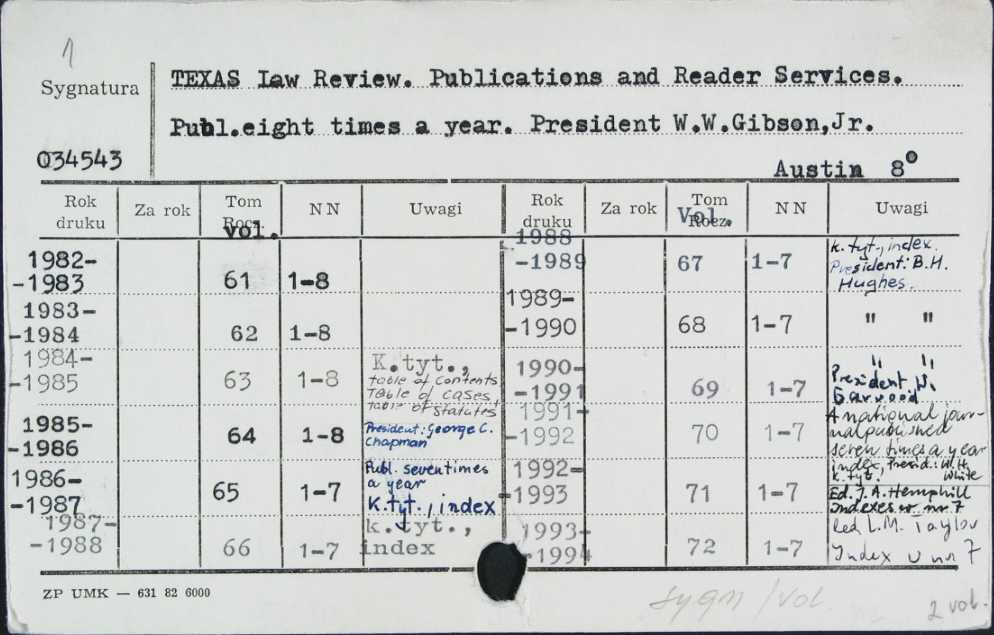 1
TEXAS Law Review. Publications and Reader Services.
Sygnatura
Publ.eight times a year. President W.W.Gibson,Jr.
034543
Austin 8°
Rok druku Za rok Tom Rocz. vol. NN Uwagi
1982-
-1983 61 1-8
1983-
-1984 62 1-8
1984-
-1985 63 1-8 K.tyt.,
table of contents
Table of cases
table of statutes
1985-
-1986 64 1-8 President: George C.
Chapman
1986-
-1987 65 1-7 Publ. seven times
a year
K.tyt., index
1987-
-1988 66 1-7 k.tyt.,
index
Rok druku Za rok Tom Rocz. Vol. NN Uwagi
1988
-1989 67 1-7 k.tyt., index.
President: B.H.
Hughes.
1989-
-1990 68 1-7 " "
1990-
-1991 69 1-7 " "
President W.
Barwood
1991-
-1992 70 1-7 A national jour-
nal published
seven times a year
index, Presid.: W.H.
k.tyt. White
1992-
-1993 71 1-7 Ed. J.A. Hemphill
Indexes w nr 7
1993-
-1994 72 1-7 Red L.M. Taylor
Index w nr 7
ZP UMK — 631 82 6000
sygn / vol.
2 vol.